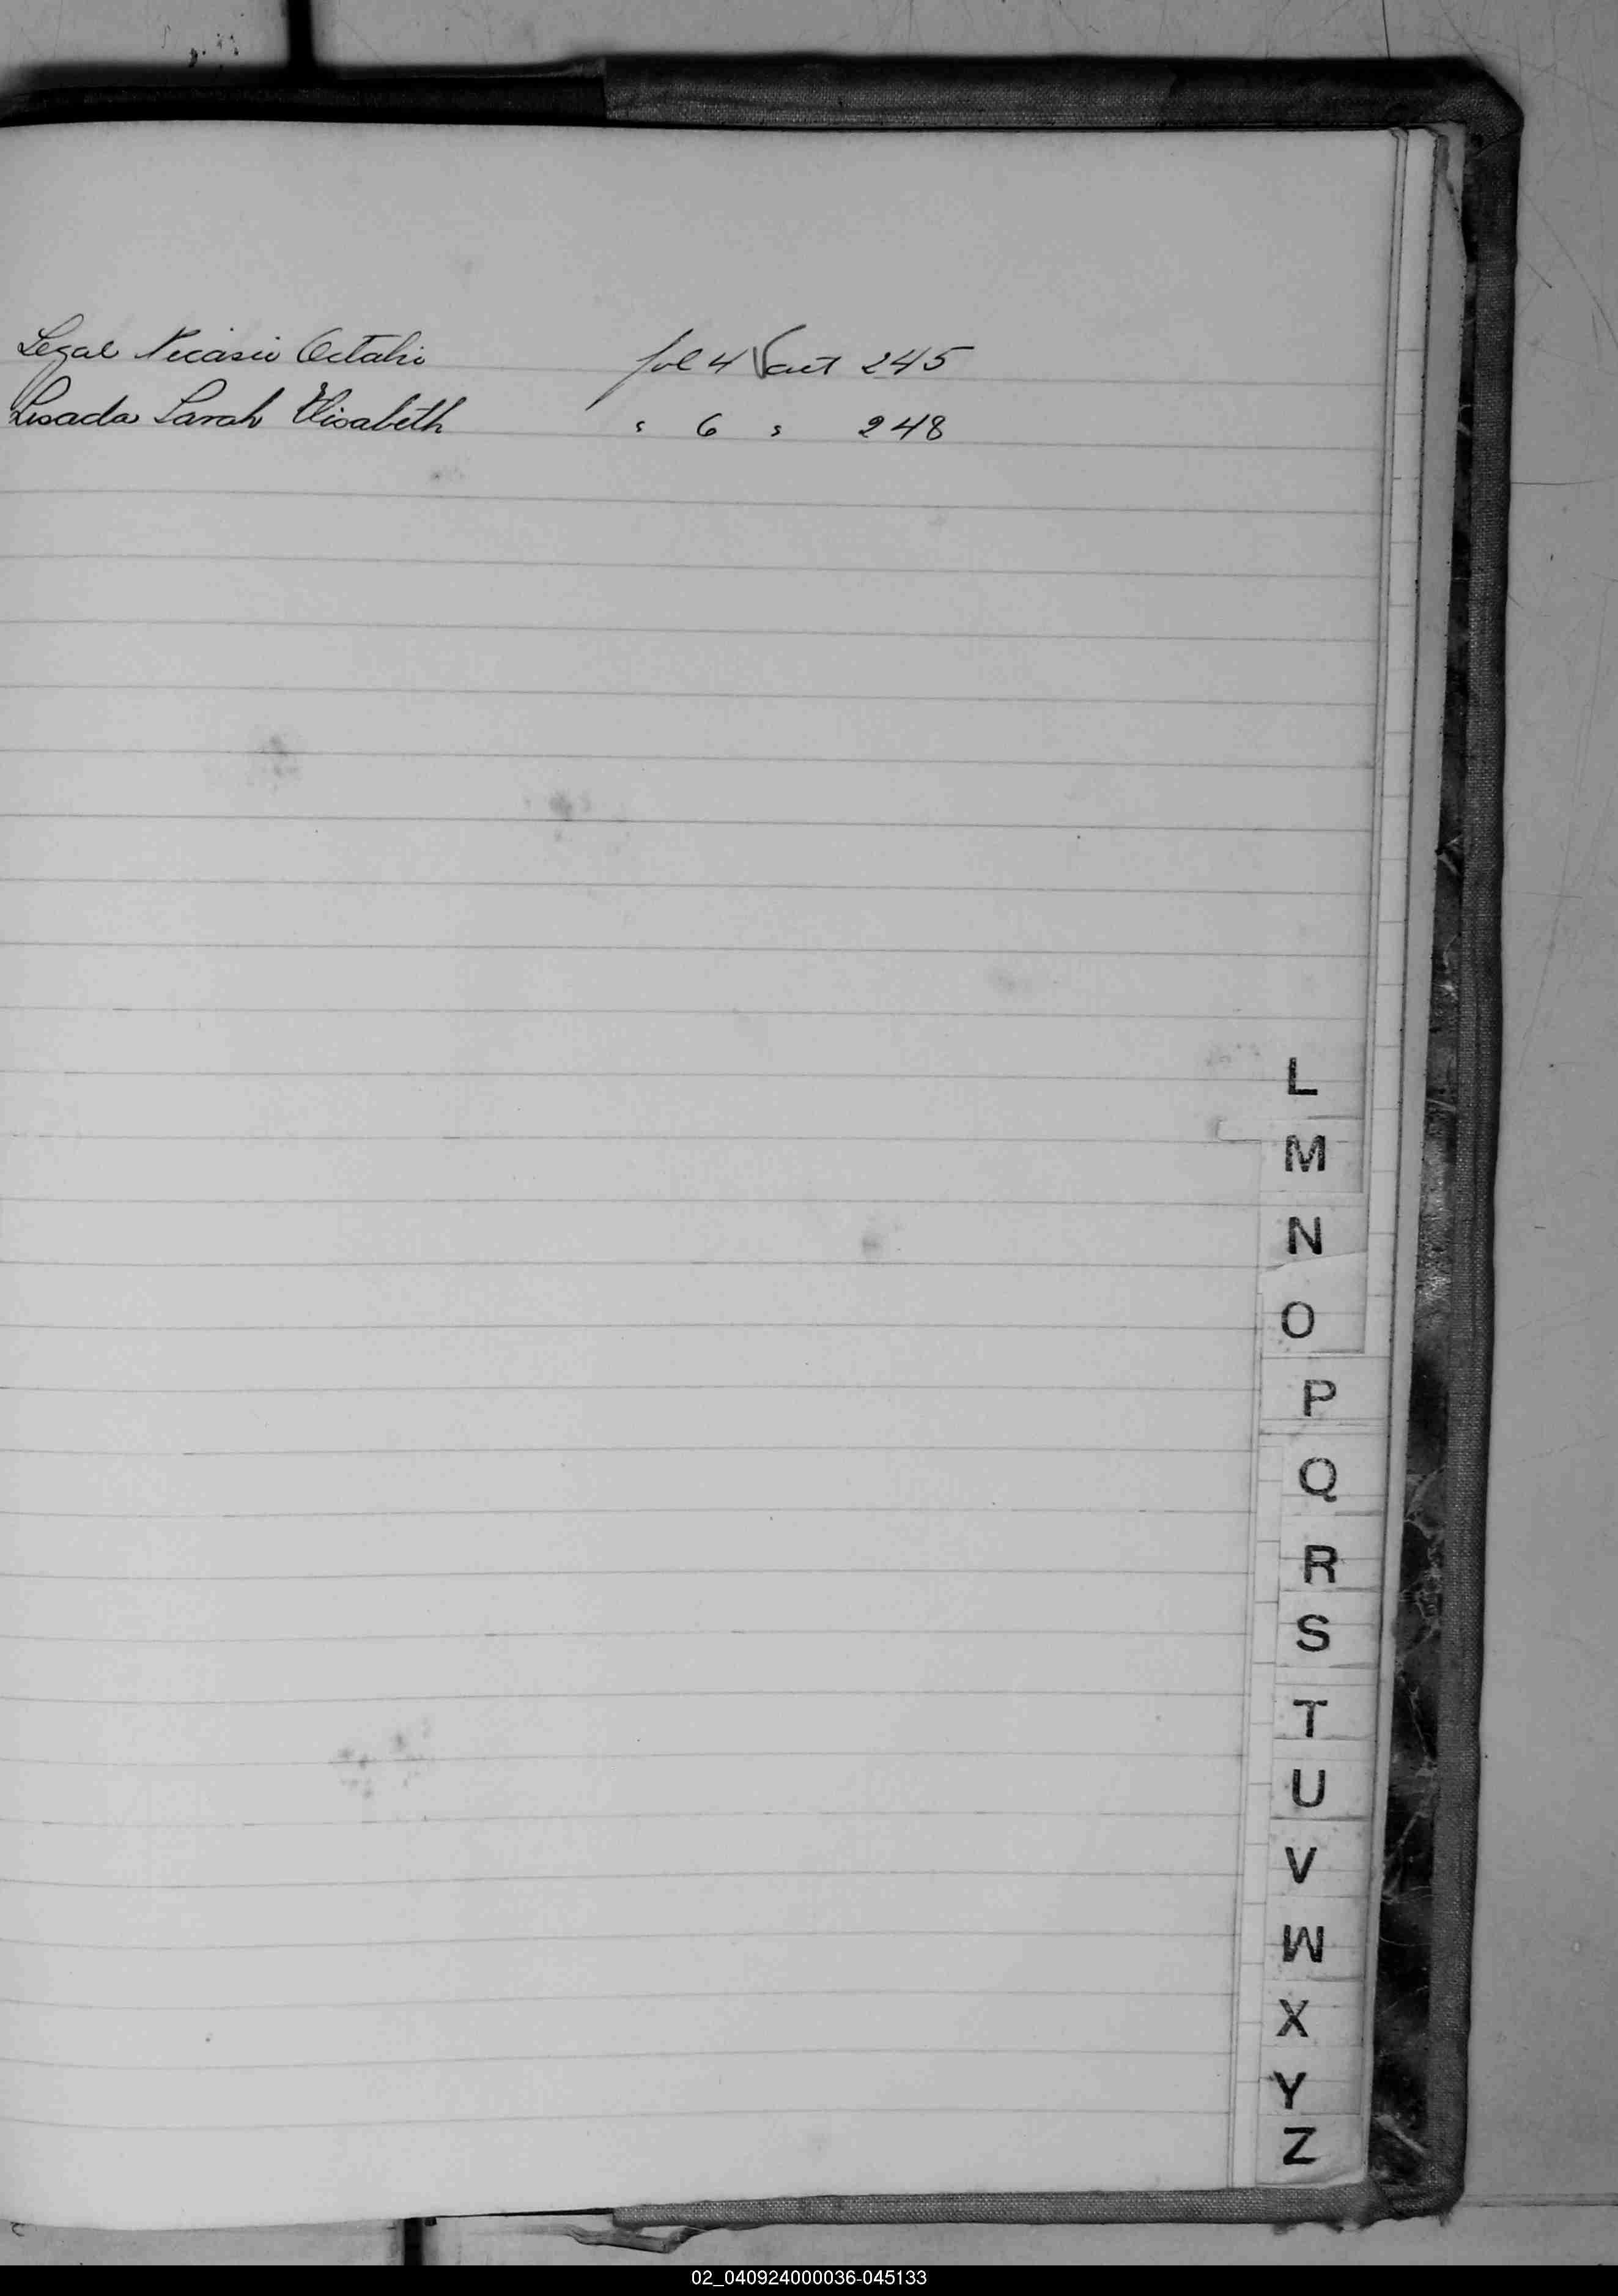 Legal Nicasio Octabi fol 4 V act 245
Lisada Sarah Elisabeth " 6 " 248
L
M
N
O
P
Q
R
S
T
U
V
W
X
Y
Z
02_040924000036-045133